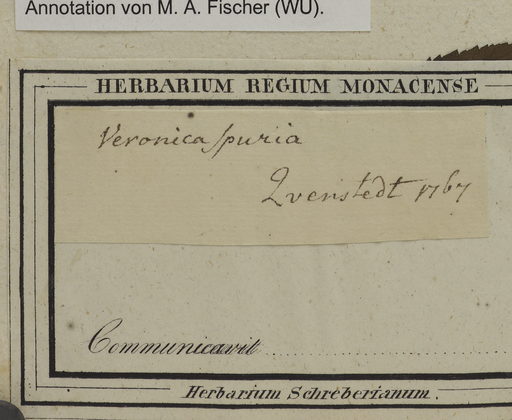 Annotation von M. A. Fischer (WU).
HERBARIUM REGIUM MONACENSE
Veronica spuria
Qvenstedt 1767
Communicavit
Herbarium Schreberianum.